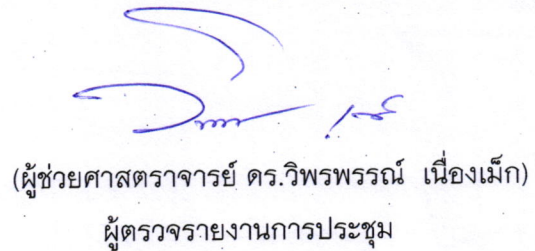 (ผู้ช่วยศาสตราจารย์ ดร.วิพรพรรณ์ เนื่องเม็ก)
ผู้ตรวจรายงานการประชุม